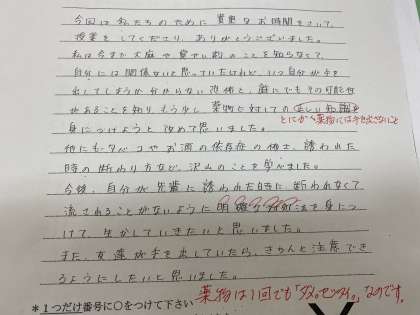 今回は私たちのために貴重なお時間をさいて、
授業をしてくださり、ありがとうございました。
私は今まで大麻や覚せい剤のことを知らなくて、
自分には関係ないと思っていたけれど、いつ自分が手を
出してしまうか分からない恐怖と、誰にでもその可能性
があることを知り、もう少し、薬物に対しての正しい知識を
とにかく薬物には手を出さないこと
身につけようと改めて思いました。
他にもタバコやお酒の依存症の怖さ、誘われた
時の断わり方など、沢山のことを学べました。
今後、自分が先輩に誘われた時に断われなくて、
流されることがないように明確な対処法を身につ
けて、生かしていきたいと思いました。
また、友達が手を出していたら、きちんと注意でき
るようにしたいと思いました。
薬物は1回でも「ダメ。ゼッタイ。」なのです。
*1つだけ番号に○をつけて下さい